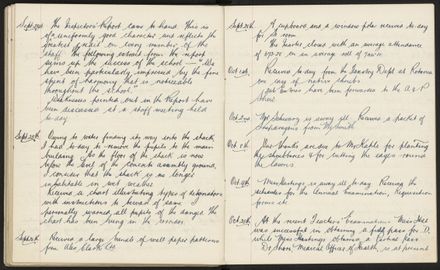 Sept 24th The Inspector's Report came to hand. This is
of a uniformly good character and reflects the
greatest credit on every member of the
staff. The following extract from the report
sums up the success of the school:- "We
have been particularly impressed by the fine
spirit of harmony that is noticeable
throughout the school."
Weaknesses pointed out in the Report have
been discussed at a staff meeting held
to-day
Sept 25th Owing to water finding its way into the shack
I had to day to remove the pupils to the main
building. As the floor of the shack is now
below the level of the concrete assembly ground,
I consider that the shack is no longer
inhabitable in wet weather
Received a chart illustrating types of detonators
with instructions to beware of same. I
personally warned all pupils of the danger. The
chart has been hung in the corridor.
Sept 26th Received a large bundle of wall paper patterns
from Alex Clark
Sept 30th A cupboard and a window pole received to day
for S room
The quarter closed with an average attendance
of
Oct 1st Received to day from the Forestry Dept at Rotorua
six bags of native shrubs
have been forwarded to the A & P
Show.
Oct 2nd Mr is away ill. Received a packet of
from Plymouth
Oct 8th Five pounds sent to McKahe for planting
the shrubberies & for cutting the edges round
the lawns
Oct 9th Miss Hastings is away ill to day. Received the
schedules for the Annual Examination, Requisition
forms etc
Oct 20th At the recent Teachers Examinations Miss
was successful in obtaining a full pass for D.
while Miss Hastings obtained a partial pass
Dr Medical Officer of Health is at present